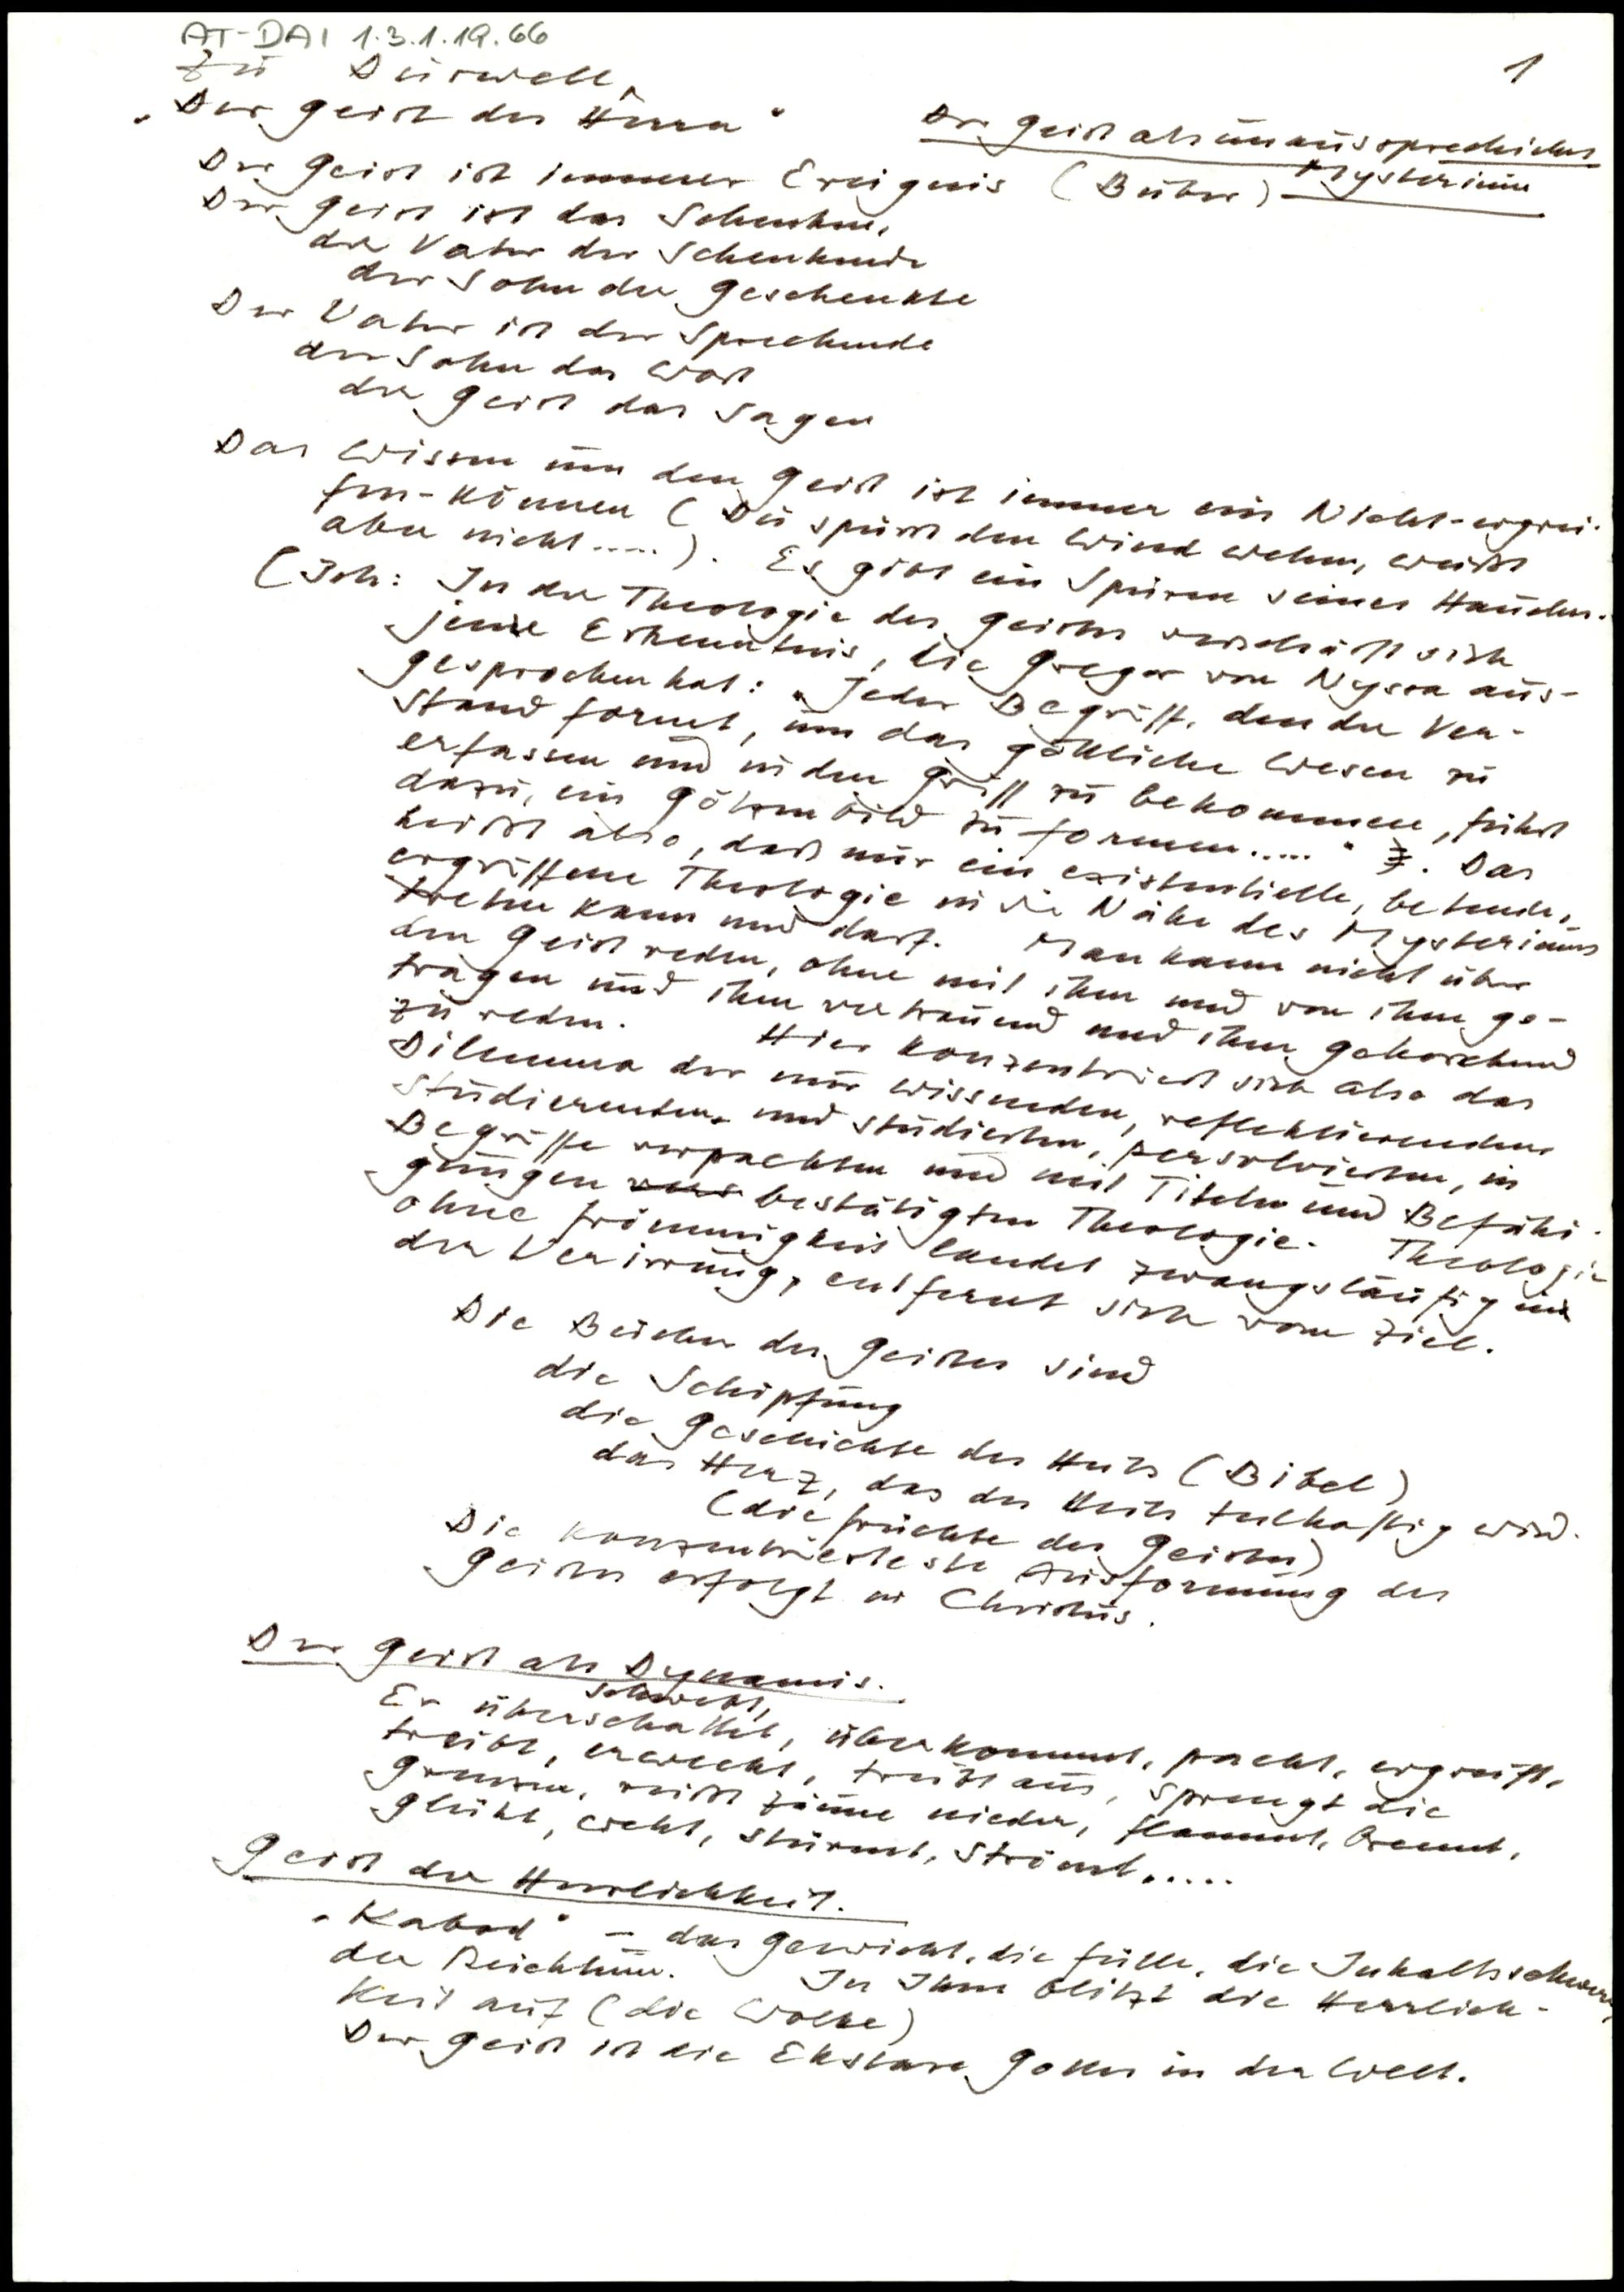 AT-DAI 1.3.1.19.66
1
Zu Durwell,
„Der Geist des Herrn"
Der Geist als unaussprechliches
Mysterium
Der Geist ist immer Ereignis (Buber)
Der Geist ist das Schenken,
der Vater der Schenkende
der Sohn der Geschenkte
Der Vater ist der Sprechende
der Sohn das Wort
der Geist das Sagen
Das Wissen um den Geist ist immer ein Nicht-ergrei-
fen-können (Du spürst den Wind wehen, weißt
aber nicht.....). Es gibt ein Spüren seines Hauches.
(Ich: In der Theologie des Geistes verschärft sich
jene Erkenntnis, die Gregor von Nyssa aus-
gesprochen hat: „Jeder Begriff, den der Ver-
stand formt, um das göttliche Wesen zu
erfassen und in den Griff zu bekommen, führt
dazu, ein Götzenbild zu formen....." Das
heißt also, daß nur ein existentielle, betende,
ergriffene Theologie in die Nähe des Mysteriums
treten kann und darf. Man kann nicht über
den Geist reden, ohne mit ihm und von ihm ge-
tragen und ihm vertrauend und ihm gehorchend
zu reden. Hier konzentriert sich also das
Dilemma der nur wissenden, reflektierenden
studierenden und studierten, persolvierten, in
Begriffe verpackten und mit Titeln und Befähi-
gungen bestätigten Theologie. Theologie
ohne Frömmigkeit landet zwangsläufig in
der Verirrung, entfernt sich vom Ziel.
Die Bücher des Geistes sind
die Schöpfung
die Geschichte des Heils (Bibel)
das Herz, das des Heils teilhaftig wird.
(die Früchte des Geistes)
Die konzentrierteste Ausformung des
Geistes erfolgt in Christus.
Der Geist als Dynamis.
schwebt,
Er überschattet, überkommt, packt, ergreift,
treibt, erweckt, treibt aus, sprengt die
Grenzen, reißt Zäune nieder, flammt, brennt,
glüht, weht, stürmt, strömt.....
Geist der Herrlichkeit.
„Kabod" – das Gewicht, die Fülle, die Inhaltsschwere,
der Reichtum. In Ihm blitzt die Herrlich-
keit auf (die Wolke)
Der Geist ist die Ekstase Gottes in der Welt.